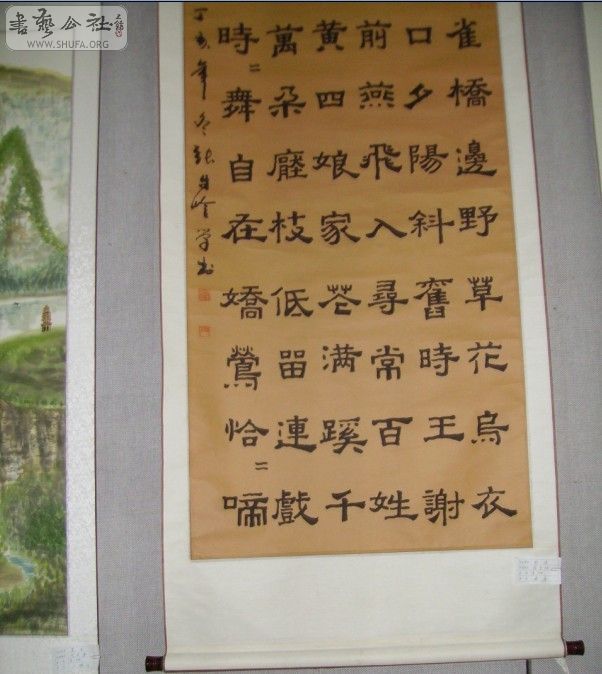 書藝公社
WWW.SHUFA.ORG
雀橋邊野草花烏衣
口夕陽斜舊時王謝
前燕飛入尋常百姓
黄四娘家花满蹊千
萬朵壓枝低留連戲
時〻舞自在嬌鶯恰〻啼
丁亥年冬